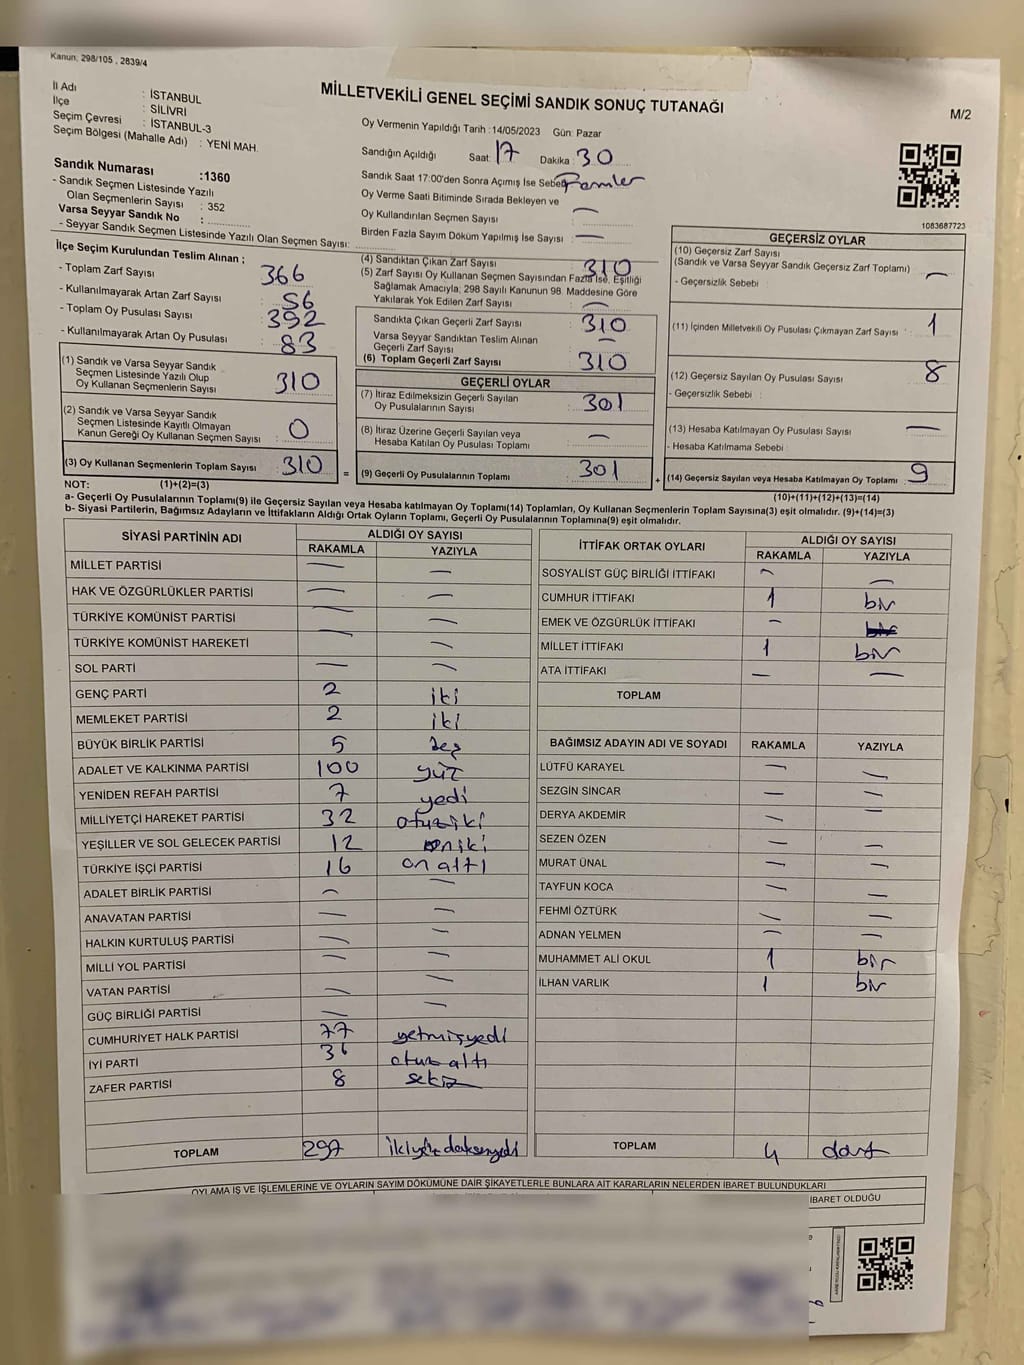 Kanun; 298/105 , 2839/4
MİLLETVEKİLİ GENEL SEÇİMİ SANDIK SONUÇ TUTANAĞI
M/2
İl Adı : İSTANBUL
İlçe : SİLİVRİ
Seçim Çevresi : İSTANBUL-3
Seçim Bölgesi (Mahalle Adı) : YENİ MAH.
Sandık Numarası :1360
- Sandık Seçmen Listesinde Yazılı
Olan Seçmenlerin Sayısı : 352
Varsa Seyyar Sandık No :
- Seyyar Sandık Seçmen Listesinde Yazılı Olan Seçmen Sayısı:
Oy Vermenin Yapıldığı Tarih :14/05/2023 Gün: Pazar
Sandığın Açıldığı Saat: 17 Dakika : 30
Sandık Saat 17:00'den Sonra Açımış İse Sebebi
Oy Verme Saati Bitiminde Sırada Bekleyen ve
Oy Kullandırılan Seçmen Sayısı : —
Birden Fazla Sayım Döküm Yapılmış İse Sayısı : —
1083687723
İlçe Seçim Kurulundan Teslim Alınan ;
- Toplam Zarf Sayısı : 366
- Kullanılmayarak Artan Zarf Sayısı : 56
- Toplam Oy Pusulası Sayısı : 392
- Kullanılmayarak Artan Oy Pusulası : 83
(1) Sandık ve Varsa Seyyar Sandık
Seçmen Listesinde Yazılı Olup
Oy Kullanan Seçmenlerin Sayısı : 310
(2) Sandık ve Varsa Seyyar Sandık
Seçmen Listesinde Kayıtlı Olmayan
Kanun Gereği Oy Kullanan Seçmen Sayısı : 0
(3) Oy Kullanan Seçmenlerin Toplam Sayısı : 310
(4) Sandıktan Çıkan Zarf Sayısı : 310
(5) Zarf Sayısı Oy Kullanan Seçmen Sayısından Fazla İse, Eşitliği
Sağlamak Amacıyla; 298 Sayılı Kanunun 98. Maddesine Göre
Yakılarak Yok Edilen Zarf Sayısı : —
Sandıkta Çıkan Geçerli Zarf Sayısı : 310
Varsa Seyyar Sandıktan Teslim Alınan
Geçerli Zarf Sayısı : —
(6) Toplam Geçerli Zarf Sayısı : 310
GEÇERLİ OYLAR
(7) İtiraz Edilmeksizin Geçerli Sayılan
Oy Pusulalarının Sayısı : 301
(8) İtiraz Üzerine Geçerli Sayılan veya
Hesaba Katılan Oy Pusulası Toplamı : —
= (9) Geçerli Oy Pusulalarının Toplamı : 301
GEÇERSİZ OYLAR
(10) Geçersiz Zarf Sayısı
(Sandık ve Varsa Seyyar Sandık Geçersiz Zarf Toplamı) : —
- Geçersizlik Sebebi :
(11) İçinden Milletvekili Oy Pusulası Çıkmayan Zarf Sayısı : 1
(12) Geçersiz Sayılan Oy Pusulası Sayısı : 8
- Geçersizlik Sebebi :
(13) Hesaba Katılmayan Oy Pusulası Sayısı : —
- Hesaba Katılmama Sebebi :
+ (14) Geçersiz Sayılan veya Hesaba Katılmayan Oy Toplamı : 9
NOT: (1)+(2)=(3)
(10)+(11)+(12)+(13)=(14)
a- Geçerli Oy Pusulalarının Toplamı(9) ile Geçersiz Sayılan veya Hesaba katılmayan Oy Toplamı(14) Toplamları, Oy Kullanan Seçmenlerin Toplam Sayısına(3) eşit olmalıdır. (9)+(14)=(3)
b- Siyasi Partilerin, Bağımsız Adayların ve İttifakların Aldığı Ortak Oyların Toplamı, Geçerli Oy Pusulalarının Toplamına(9) eşit olmalıdır.
SİYASİ PARTİNİN ADI ALDIĞI OY SAYISI
RAKAMLA YAZIYLA
MİLLET PARTİSİ — —
HAK VE ÖZGÜRLÜKLER PARTİSİ — —
TÜRKİYE KOMÜNİST PARTİSİ — —
TÜRKİYE KOMÜNİST HAREKETİ — —
SOL PARTİ — —
GENÇ PARTİ 2 iki
MEMLEKET PARTİSİ 2 iki
BÜYÜK BİRLİK PARTİSİ 5 beş
ADALET VE KALKINMA PARTİSİ 100 yüz
YENİDEN REFAH PARTİSİ 7 yedi
MİLLİYETÇİ HAREKET PARTİSİ 32 otuziki
YEŞİLLER VE SOL GELECEK PARTİSİ 12 oniki
TÜRKİYE İŞÇİ PARTİSİ 16 on altı
ADALET BİRLİK PARTİSİ — —
ANAVATAN PARTİSİ — —
HALKIN KURTULUŞ PARTİSİ — —
MİLLİ YOL PARTİSİ — —
VATAN PARTİSİ — —
GÜÇ BİRLİĞİ PARTİSİ — —
CUMHURİYET HALK PARTİSİ 77 yetmişyedi
İYİ PARTİ 36 otuz altı
ZAFER PARTİSİ 8 sekiz
TOPLAM 297 ikiyüz doksanyedi
İTTİFAK ORTAK OYLARI ALDIĞI OY SAYISI
RAKAMLA YAZIYLA
SOSYALİST GÜÇ BİRLİĞİ İTTİFAKI — —
CUMHUR İTTİFAKI 1 bir
EMEK VE ÖZGÜRLÜK İTTİFAKI —
MİLLET İTTİFAKI 1 bir
ATA İTTİFAKI — —
TOPLAM
BAĞIMSIZ ADAYIN ADI VE SOYADI RAKAMLA YAZIYLA
LÜTFÜ KARAYEL — —
SEZGİN SİNCAR — —
DERYA AKDEMİR — —
SEZEN ÖZEN — —
MURAT ÜNAL — —
TAYFUN KOCA — —
FEHMİ ÖZTÜRK — —
ADNAN YELMEN — —
MUHAMMET ALİ OKUL 1 bir
İLHAN VARLIK 1 bir
TOPLAM 4 dört
OYLAMA İŞ VE İŞLEMLERİNE VE OYLARIN SAYIM DÖKÜMÜNE DAİR ŞİKAYETLERLE BUNLARA AİT KARARLARIN NELERDEN İBARET BULUNDUKLARI
İBARET OLDUĞU